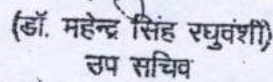 (डॉ. महेन्द्र सिंह रघुवंशी)
उप सचिव